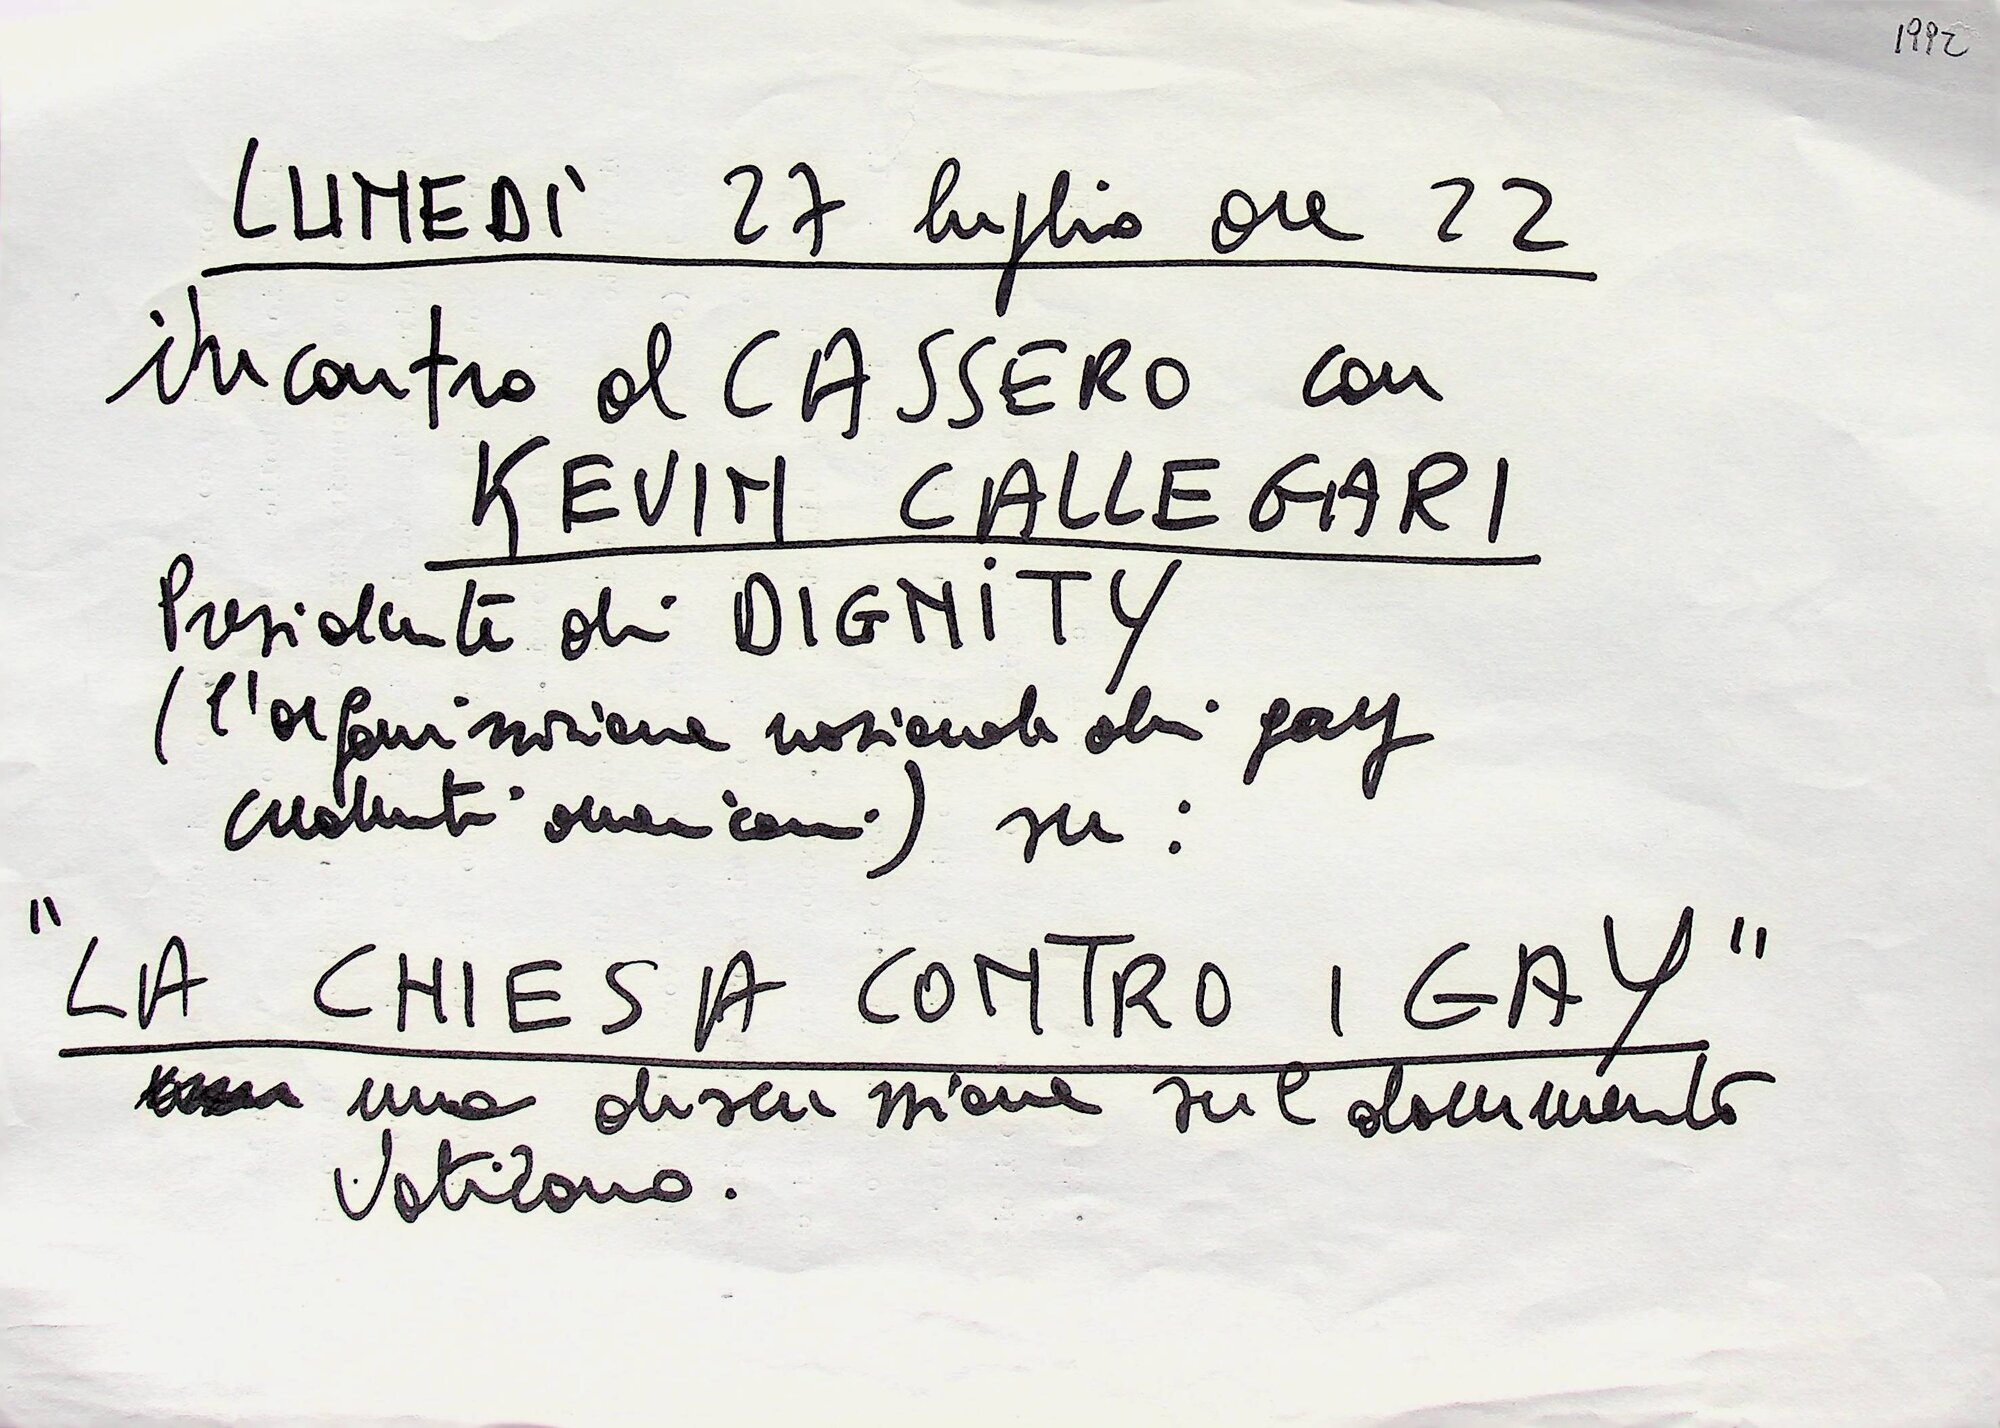 1992
LUNEDÌ 27 luglio ore 22
incontro al CASSERO con
KEVIN CALLEGARI
Presidente di DIGNITY
(l'organizzazione nazionale di gay
credenti americani) su:
"LA CHIESA CONTRO I GAY"
una discussione sul documento
Vaticano.